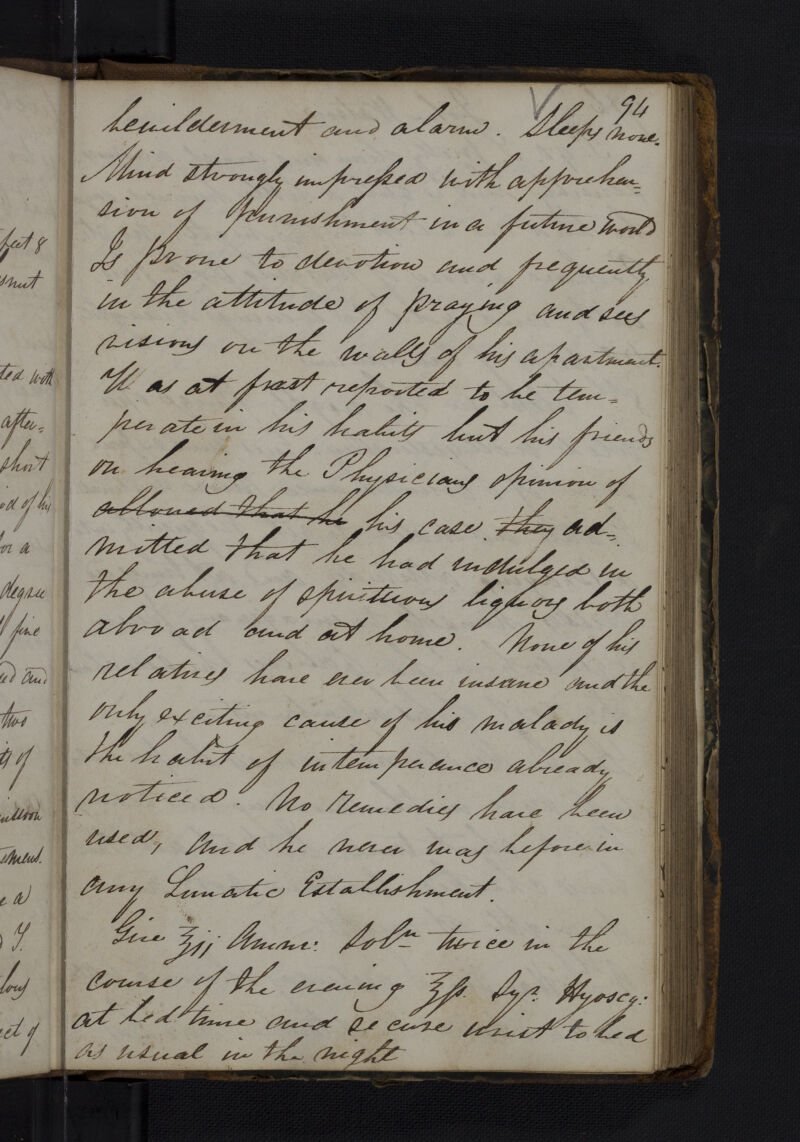 94
bewilderment and alarm. Sleeps none.
Mind strongly impressed with apprehen=
sion of punishment in a future World
Is prone to devotion and frequently
in the attitude of praying and sees
visions on the walls of his apartment.
Was at first reported to be tem=
perate in his habits but his friends
on hearing the Physicians opinion of
allowed that he his case they ad=
mitted that he had indulged in
the abuse of spirituous liquors both
abroad and at home. None of his
relatives have ever been insane and the
only exciting cause of his malady is
the habit of intemperance already
noticed. No remedies have been
used, and he never was before in
any Lunatic Establishment.
Give ʒij Amm: Soln twice in the
course of the evening ʒß. Syr. Hyoscy:
at bedtime and secure wrist to bed
as usual in the night
feet 8
ted with
after=
short
od of his
for a
degree
fine
ed and
two
of
e a
of